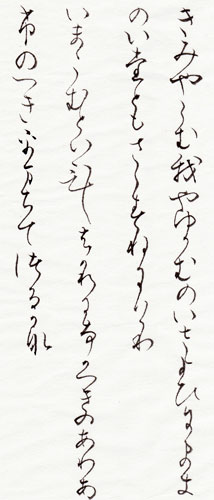 きみやこむ我やゆかむのいさよひにまき
のいたともさゝすねにけり
いまこむといひしはかりになかつきのありあ
けのつきをまちいてつるかな